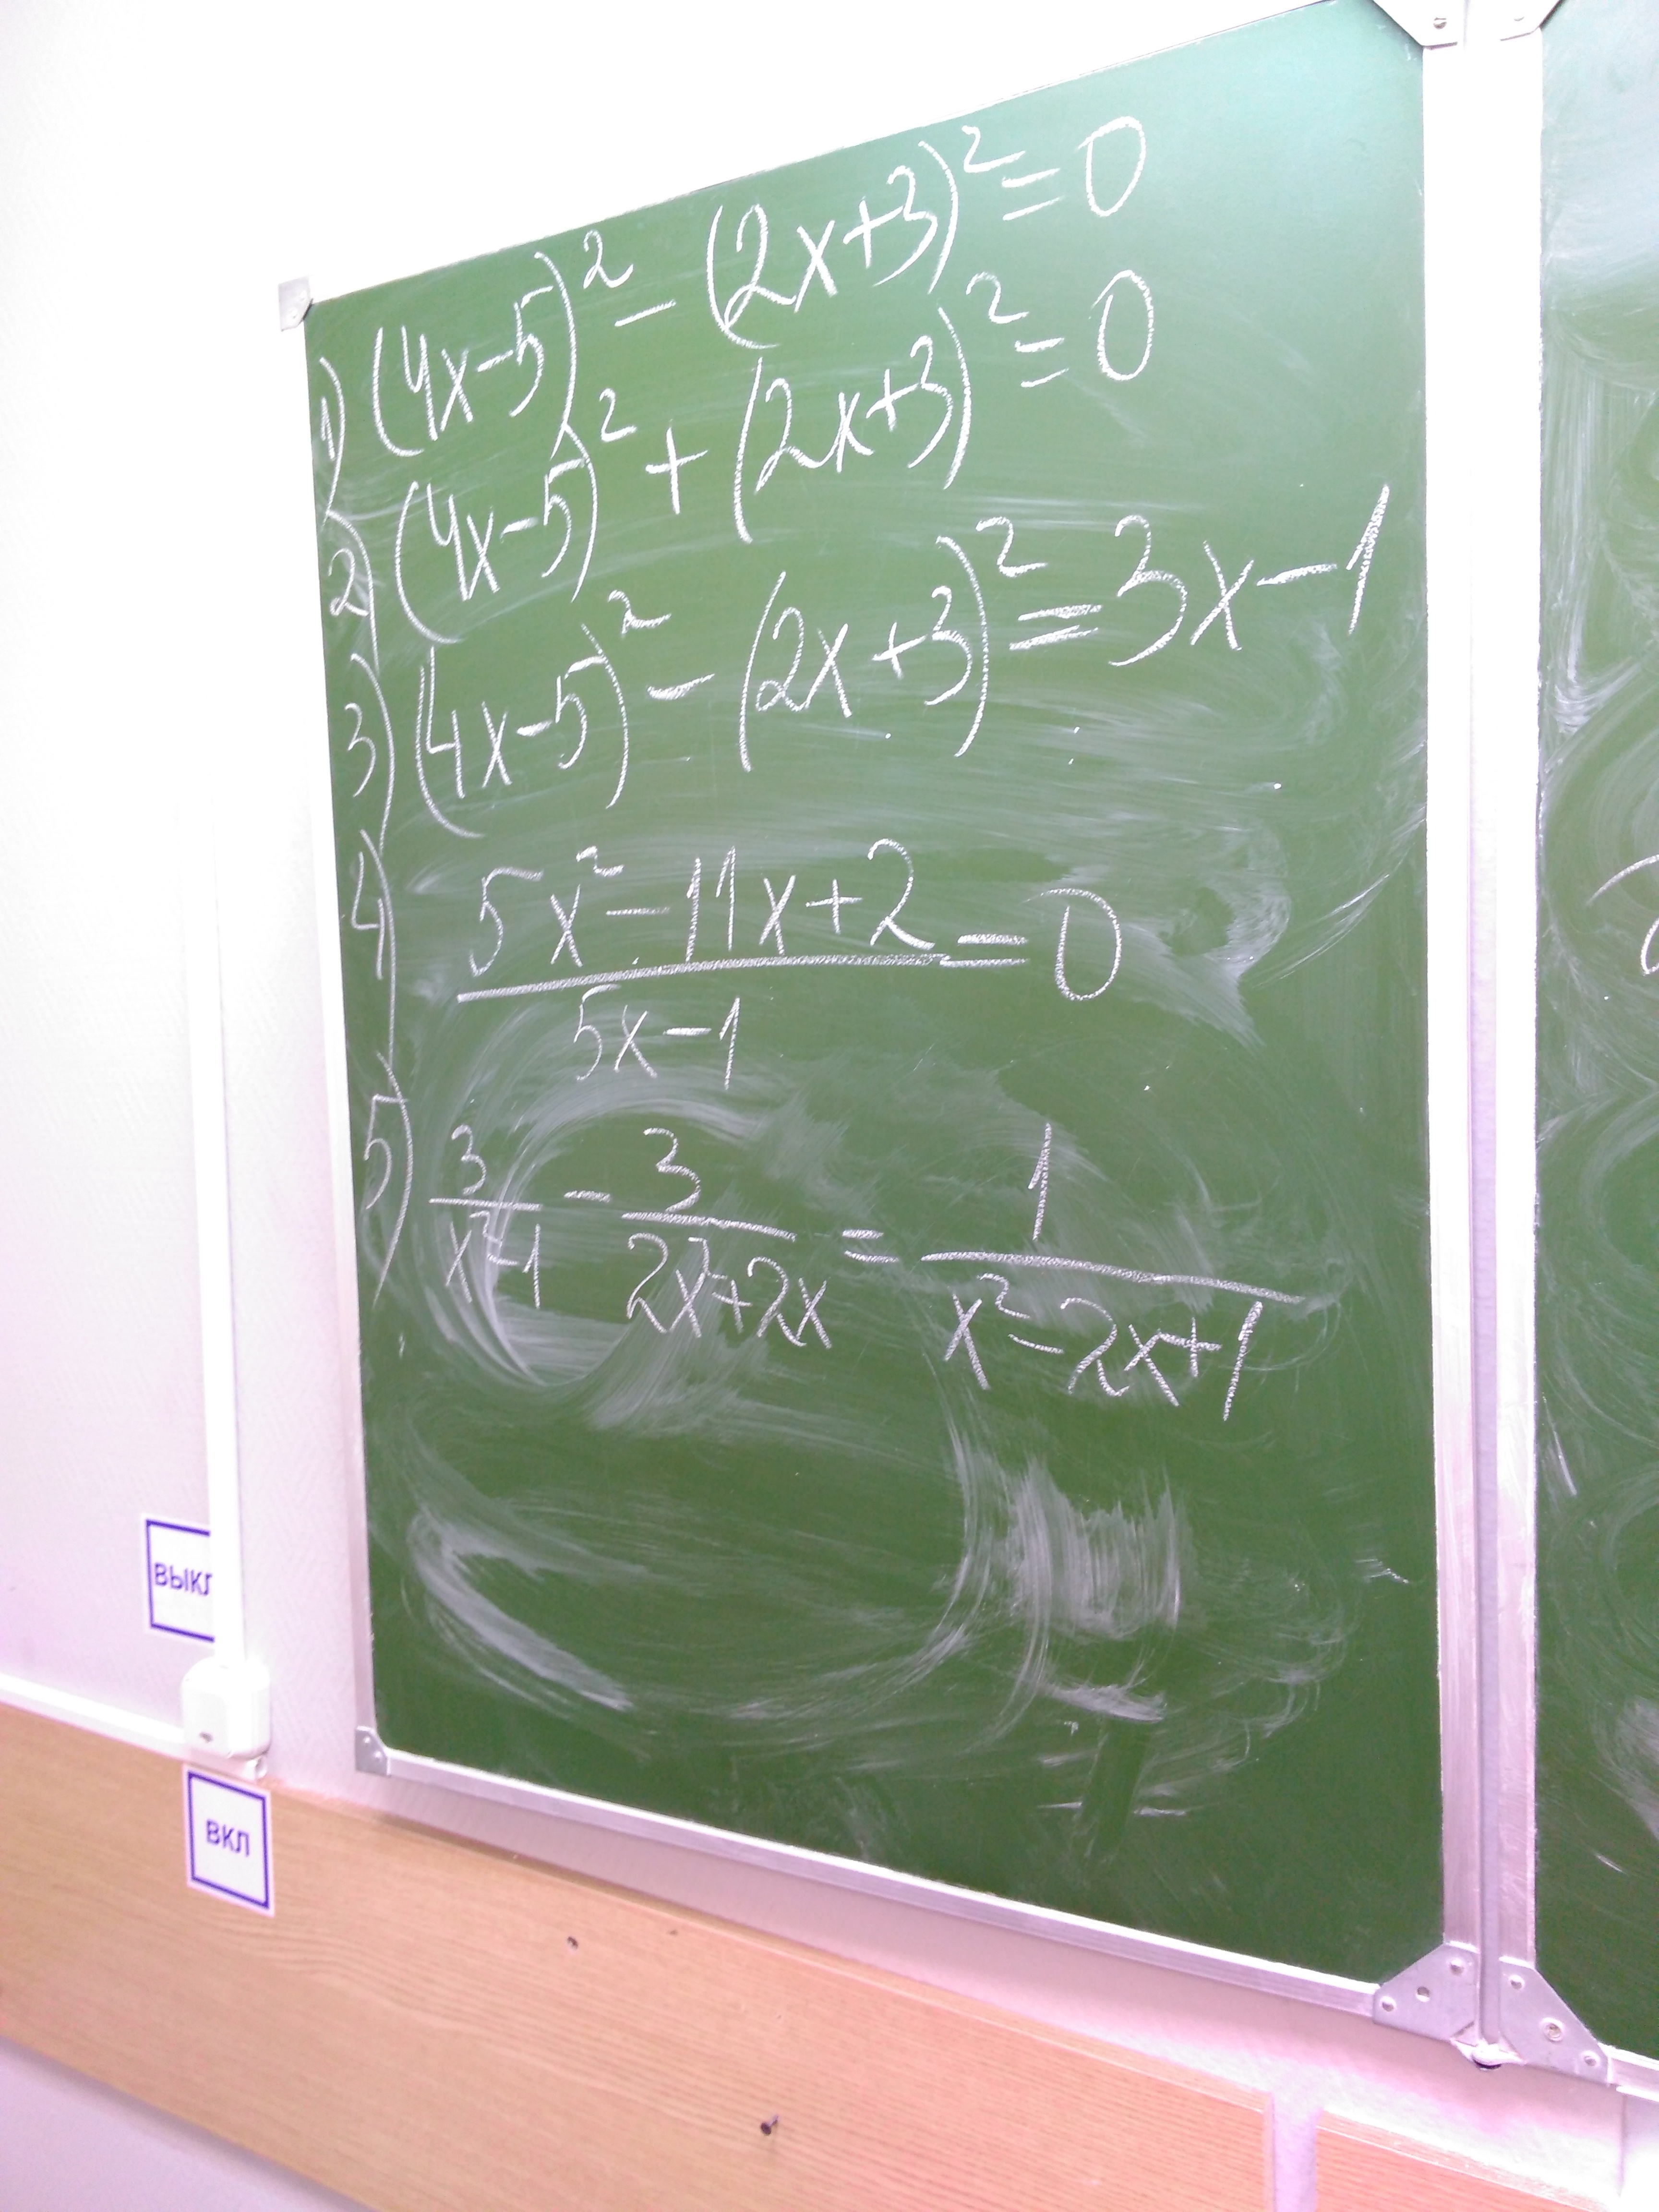 1) (4x-5)² - (2x+3)² = 0
2) (4x-5)² + (2x+3)² = 0
3) (4x-5)² - (2x+3)² = 3x-1
4) (5x²-11x+2)/(5x-1) = 0
5) 3/(x²-1) - 3/(2x²+2x) = 1/(x²-2x+1)
ВЫКЛ
ВКЛ